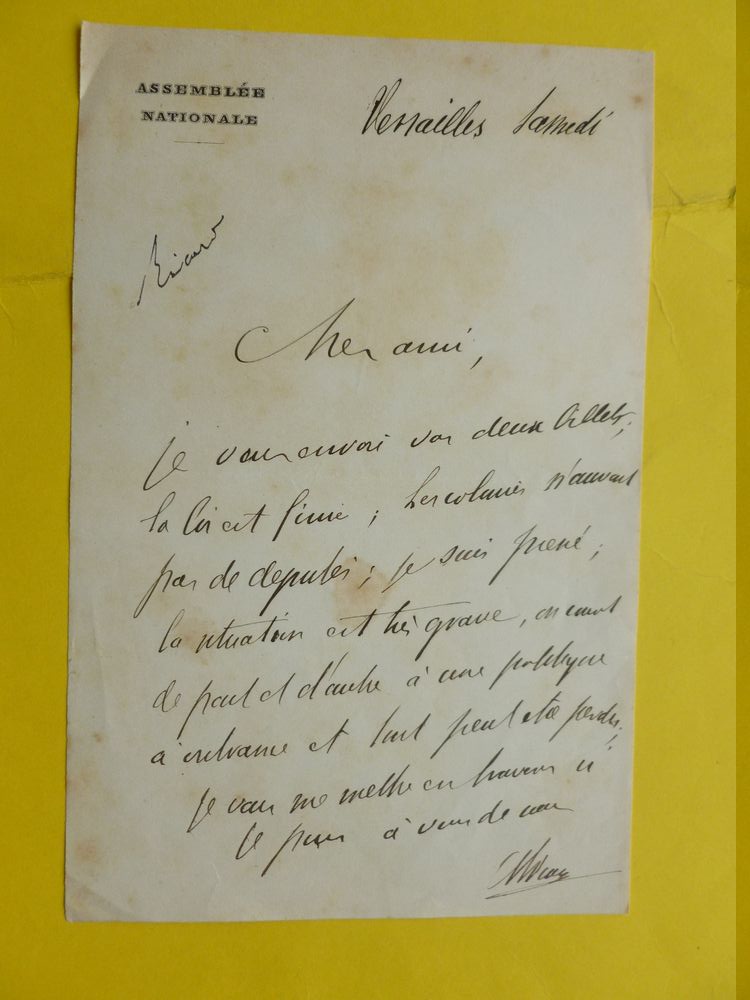 ASSEMBLÉE
NATIONALE
Versailles Samedi
Ricard
Cher ami,
je vous envoie vos deux billets;
la loi est finie; les colonies n'auront
pas de deputés; je suis pressé;
la situation est très grave, on court
de part et d'autre à une politique
à outrance et tout peut être perdu;
je vais me mettre en travers si
je puis à vous de cœur